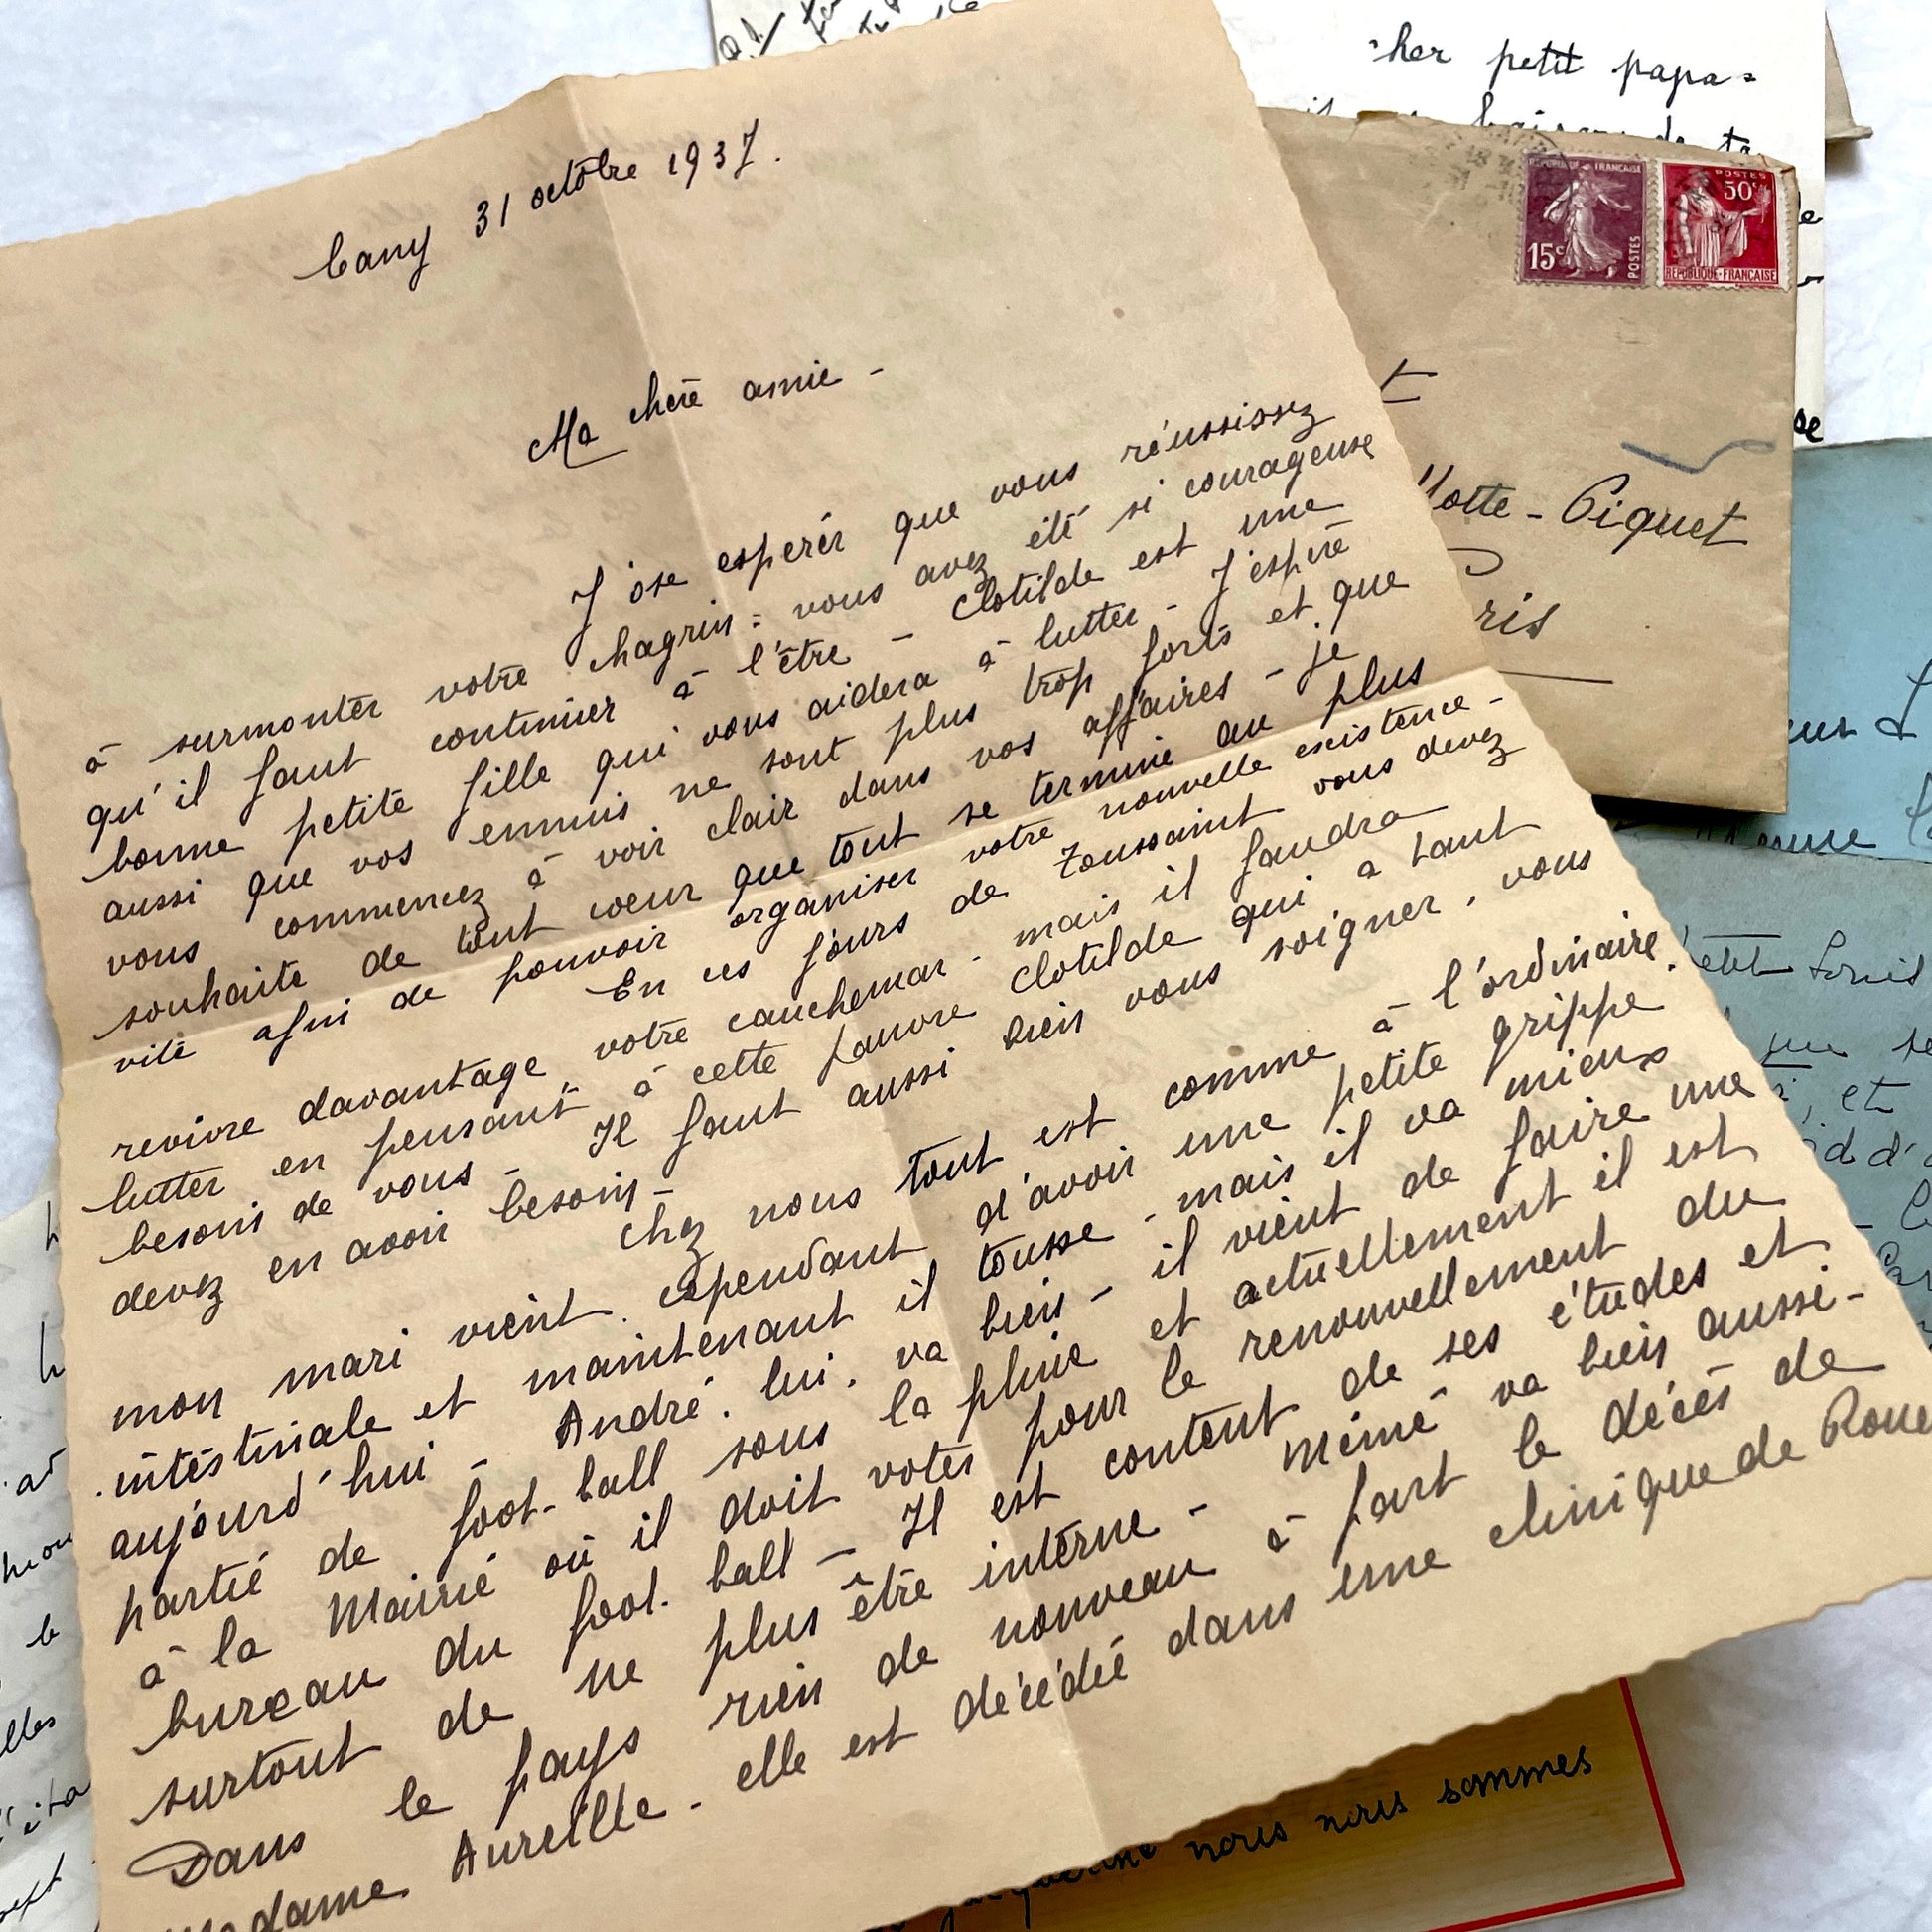 Cany 31 octobre 1937.
Ma chère amie -
J'ose espérer que vous réussissez
à surmonter votre chagrin : vous avez été si courageuse
qu'il faut continuer à l'être - Clotilde est une
bonne petite fille qui vous aidera à lutter - J'espère
aussi que vos ennuis ne sont plus trop forts et que
vous commencez à voir clair dans vos affaires - je
souhaite de tout coeur que tout se termine au plus
vite afin de pouvoir organiser votre nouvelle existence -
En ces jours de Toussaint vous devez
revivre davantage votre cauchemar - mais il faudra
lutter en pensant à cette pauvre Clotilde qui a tant
besoin de vous - Il faut aussi bien vous soigner, vous
devez en avoir besoin -
Chez nous tout est comme à l'ordinaire.
mon mari vient cependant d'avoir une petite grippe
intestinale et maintenant il tousse - mais il va mieux
aujourd'hui - André, lui, va bien - il vient de faire une
partie de foot-ball sous la pluie et actuellement il est
à la Mairie où il doit voter pour le renouvellement du
bureau du foot-ball - Il est content de ses études et
surtout de ne plus être interne - Mémé va bien aussi -
Dans le pays rien de nouveau à part le décès de
Madame Aureille - elle est décédée dans une clinique de Roue
her petit papa =
baisers de ta
REPUBLIQUE FRANÇAISE
15c
POSTES
POSTES
50c
REPUBLIQUE FRANÇAISE
otte-Piquet
ris
etit Louis
, et
nous nous sommes